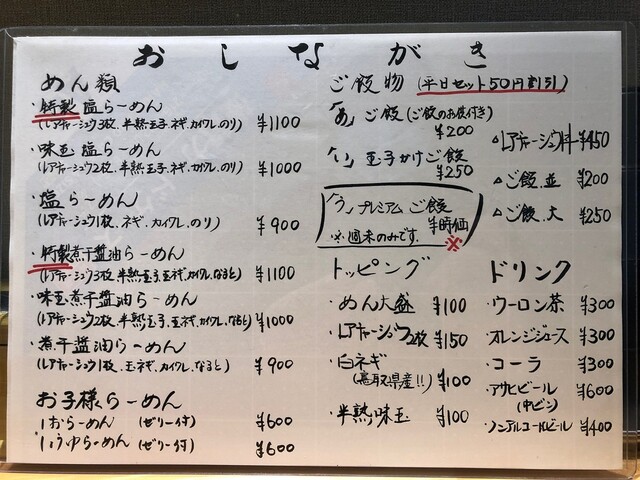 おしながき
めん類
・特製塩らーめん
(レアチャーシュウ3枚、半熟玉子、ネギ、カイワレ、のり) ¥1100
・味玉塩らーめん
(レアチャーシュウ2枚、半熟玉子、ネギ、カイワレ、のり) ¥1000
・塩らーめん
(レアチャーシュウ1枚、ネギ、カイワレ、のり) ¥900
・特製煮干醤油らーめん
(レアチャーシュウ3枚、半熟玉子、玉ネギ、カイワレ、なると) ¥1100
・味玉煮干醤油らーめん
(レアチャーシュウ2枚、半熟玉子、玉ネギ、カイワレ、なると) ¥1000
・煮干醤油らーめん
(レアチャーシュウ1枚、玉ネギ、カイワレ、なると) ¥900
お子様らーめん
しおらーめん (ゼリー付) ¥600
しょうゆらーめん (ゼリー付) ¥600
ご飯物 (平日セット50円割引)
「あ」ご飯 (ご飯のお供付き)
¥200
「い」玉子かけご飯
¥250
「う」プレミアムご飯
¥時価
※週末のみです。 ※
△レアチャーシュウ丼 ¥450
△ご飯、並 ¥200
△ご飯、大 ¥250
トッピング
・めん大盛 ¥100
・レアチャーシュウ2枚 ¥150
・白ネギ
(鳥取県産!!) ¥100
・半熟味玉 ¥100
ドリンク
・ウーロン茶 ¥300
・オレンジジュース ¥300
・コーラ ¥300
・アサヒビール ¥600
(中ビン)
・ノンアルコールビール ¥400